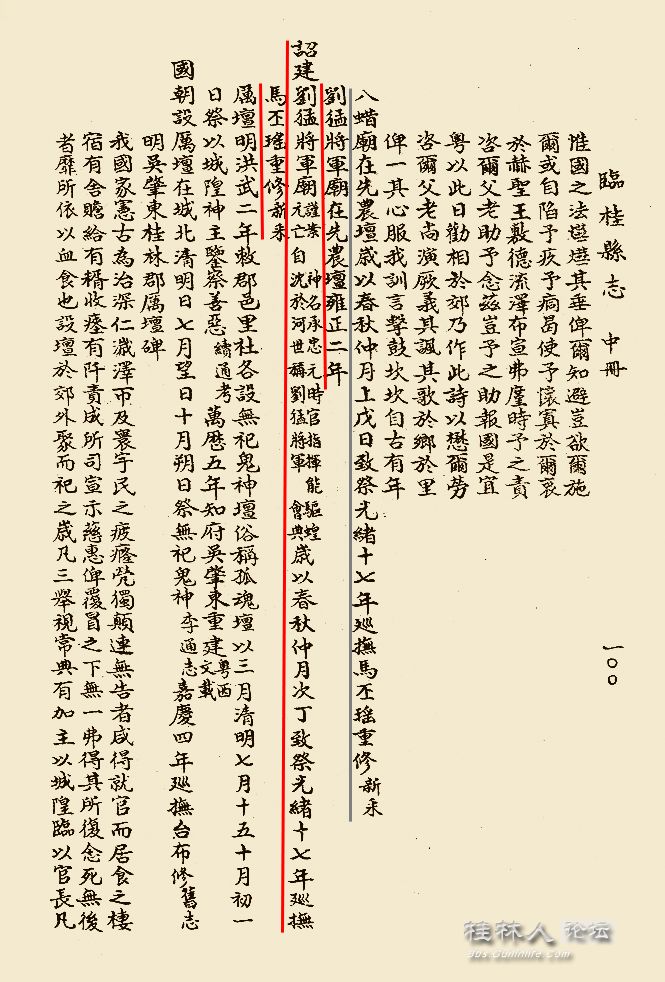 臨桂縣志 中冊 一〇〇
惟國之法懲懲其垂俾爾知避豈欲爾施
爾或自陷予疚予痌曷使予懷寘於爾衷
於赫聖王敷德流澤布宣弗虔時予之責
咨爾父老助予念茲豈予之助報國是宜
粵以此日勸相於郊乃作此詩以懋爾勞
咨爾父老尚演厥義其諷其歌於鄉於里
俾一其心服我訓言擊鼓坎坎自古有年
八蜡廟在先農壇歲以春秋仲月上戊日致祭光緒十七年巡撫馬丕瑤重修新采
劉猛將軍廟在先農壇雍正二年
詔建劉猛將軍廟謹案神名承忠元時官指揮能驅蝗元亡自沈於河世稱劉猛將軍會典歲以春秋仲月次丁致祭光緒十七年巡撫
馬丕瑤重修新采
厲壇明洪武二年敕郡邑里社各設無祀鬼神壇俗稱孤魂壇以三月清明七月十五十月初一
日祭以城隍神主鑒察善惡續通考萬歷五年知府吳肇東重建粵西文載
國朝設厲壇在城北清明日七月望日十月朔日祭無祀鬼神李通志嘉慶四年巡撫台布修舊志
明吳肇東桂林郡厲壇碑
我國家憲古為治深仁濊澤帀及寰宇民之疲癃煢獨顛連無告者咸得就官而居食之棲
宿有舍贍給有糈收瘞有阡責成所司宣示慈惠俾覆冒之下無一弗得其所復念死無後
者靡所依以血食也設壇於郊外聚而祀之歲凡三舉視常典有加主以城隍臨以官長凡
桂林人 论坛
bbs.Guilinlife.com